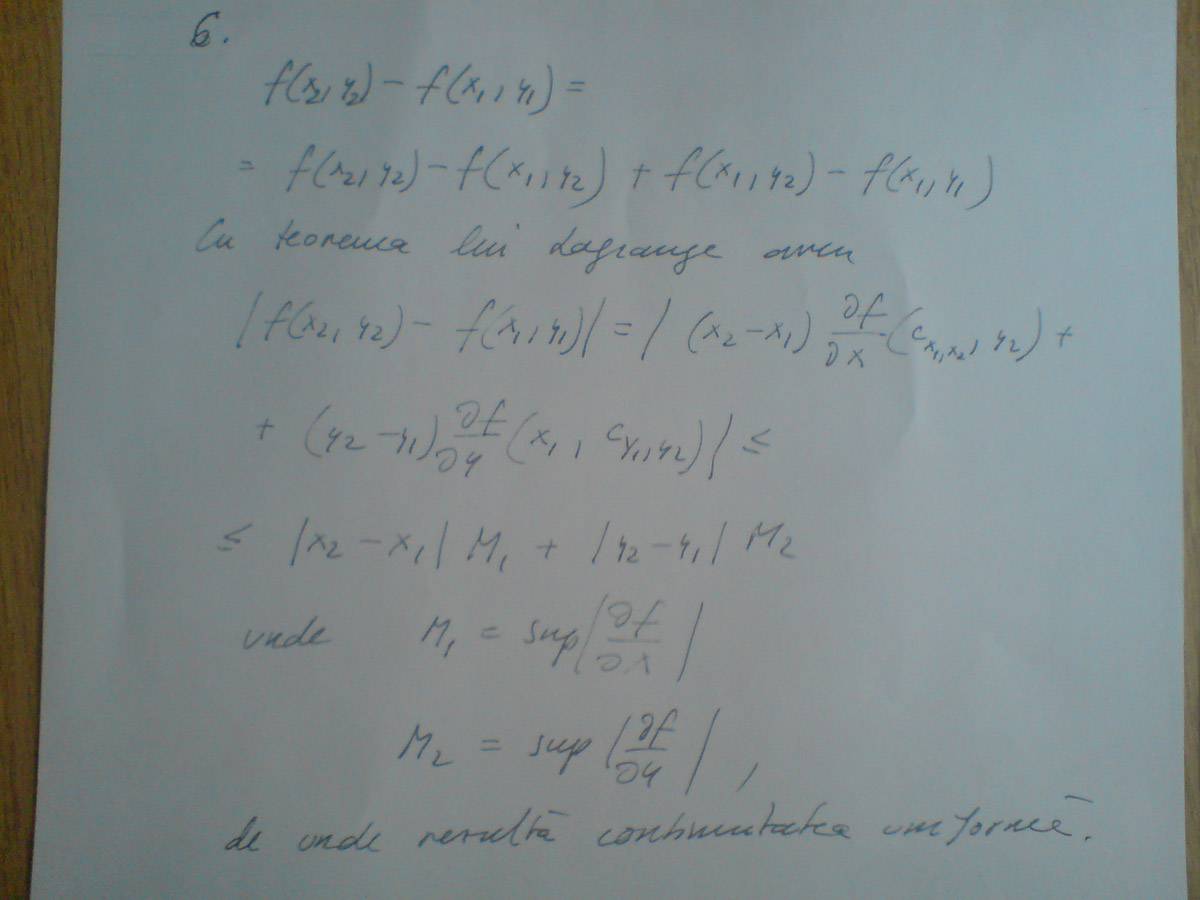 6.
f(x₂, y₂) − f(x₁, y₁) =
= f(x₂, y₂) − f(x₁, y₂) + f(x₁, y₂) − f(x₁, y₁)
Cu teorema lui Lagrange avem
|f(x₂, y₂) − f(x₁, y₁)| = |(x₂ − x₁) ∂f/∂x (c_{x₁,x₂}, y₂) +
+ (y₂ − y₁) ∂f/∂y (x₁, c_{y₁,y₂})| ≤
≤ |x₂ − x₁| M₁ + |y₂ − y₁| M₂
unde M₁ = sup |∂f/∂x|
M₂ = sup |∂f/∂y| ,
de unde rezultă continuitatea uniformă.